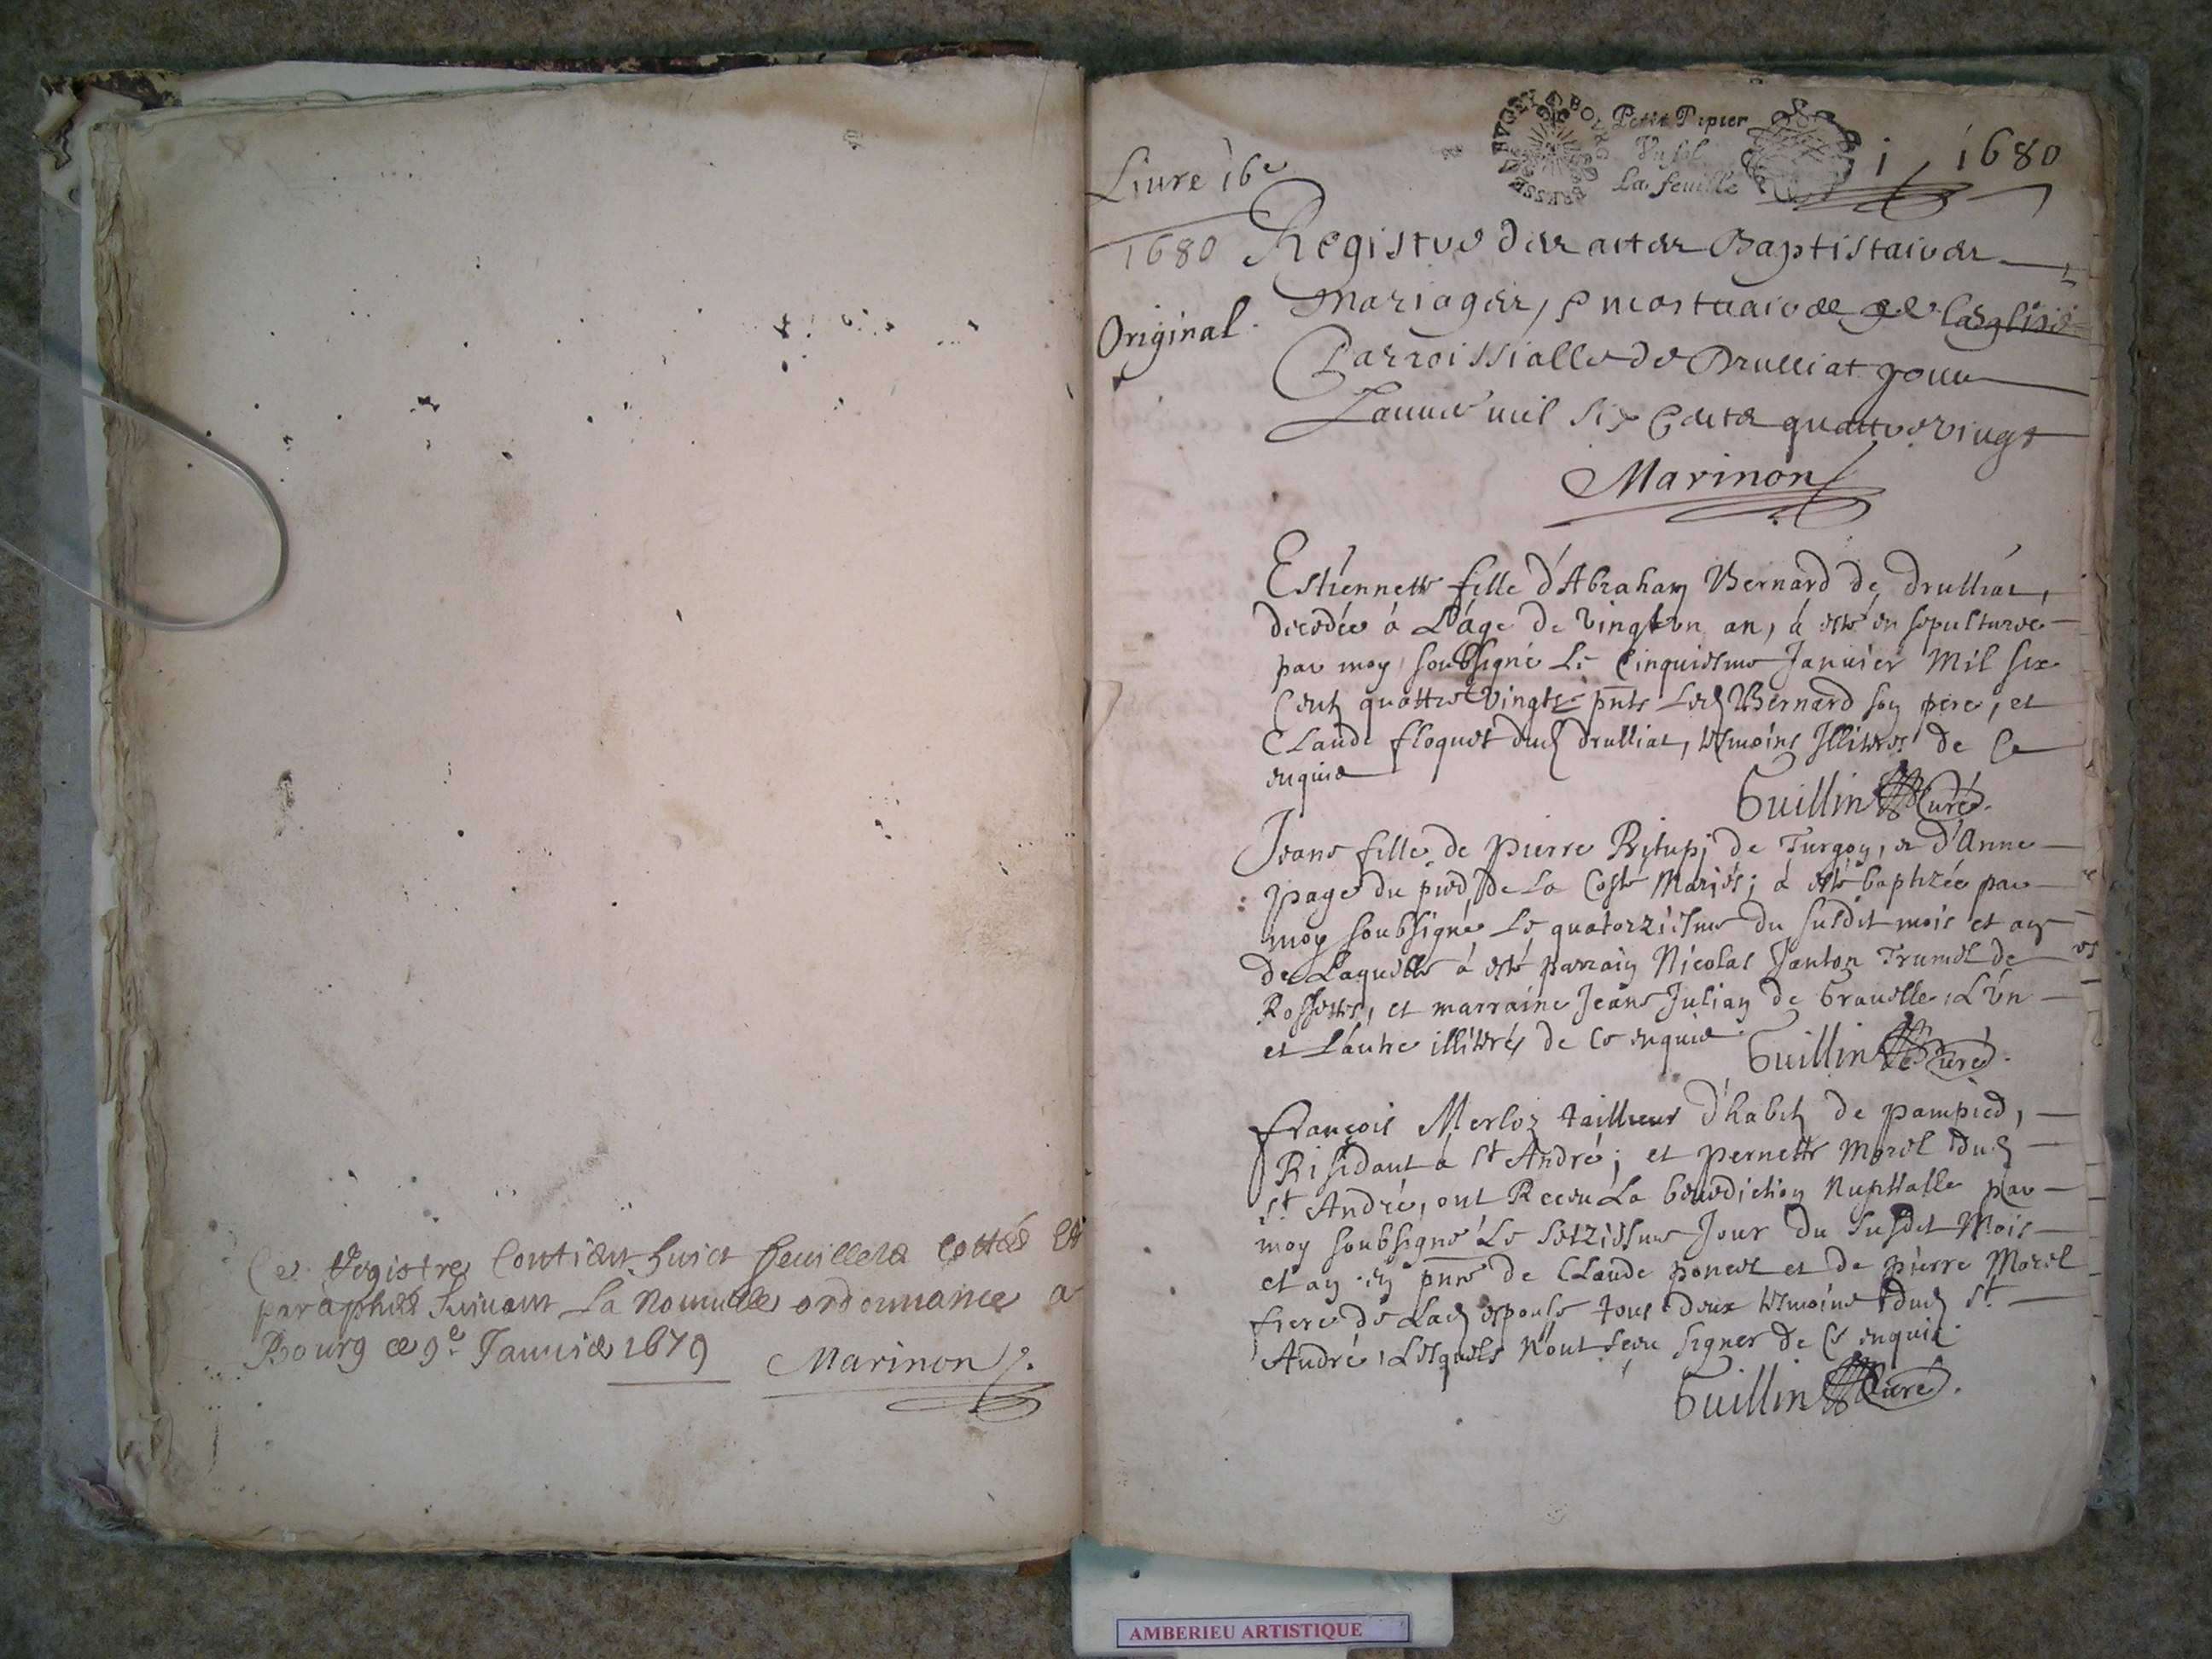 Ce Registre Contient huict feuillets cottés Et
paraphés Suivant La Nouvelle ordonnance a
Bourg ce 9e Janvier 1679 Marinon
Livre 16e
Petit Papier
La feuille
1 1680
1680 Registre des actes Baptistaires
Mariages, & mortuaires de Leglise
Original.
Parroissialle de Drulliat pour
Lannee mil Six Cents quattre vingt
Marinon
Estiennette fille d'Abraham Bernard de drulliat,
decedée à L'áge de vingt un an, á esté en sepulturée
par moy soubsigné Le Cinquiesme Januier Mil six
Cents quattre vingts pnts Led Bernard son pere, et
CLaude floquet dud drulliat, tesmoins Illiteres de Ce
enquis
Guillin Curé.
Jeane fille de pierre de Turgon, et d'Anne
page du pied de La Coste Mariés; á esté baptizée par
moy soubsigné Le quatorziesme du susdit mois et an
de Laquelle á esté parrain Nicolas Janton Trumel de
Rossettes, et marraine Jeane Julian de Grauelle, L'un
et L'autre illiterés de Ce enquis
Guillin Curé.
françois Merloz tailleur d'habits de pampied,
Residant á St André; et pernette Morel dud
St André, ont Receu La benediction Nuptialle par
moy soubsigné Le seiziesme Jour du Susdit Mois
et an en pnce de CLaude poncet et de pierre Morel
frere de Lad espouse tous deux tesmoins dud St
André, Lesquels n'ont sceu signer de Ce enquis.
Guillin Curé.
AMBERIEU ARTISTIQUE